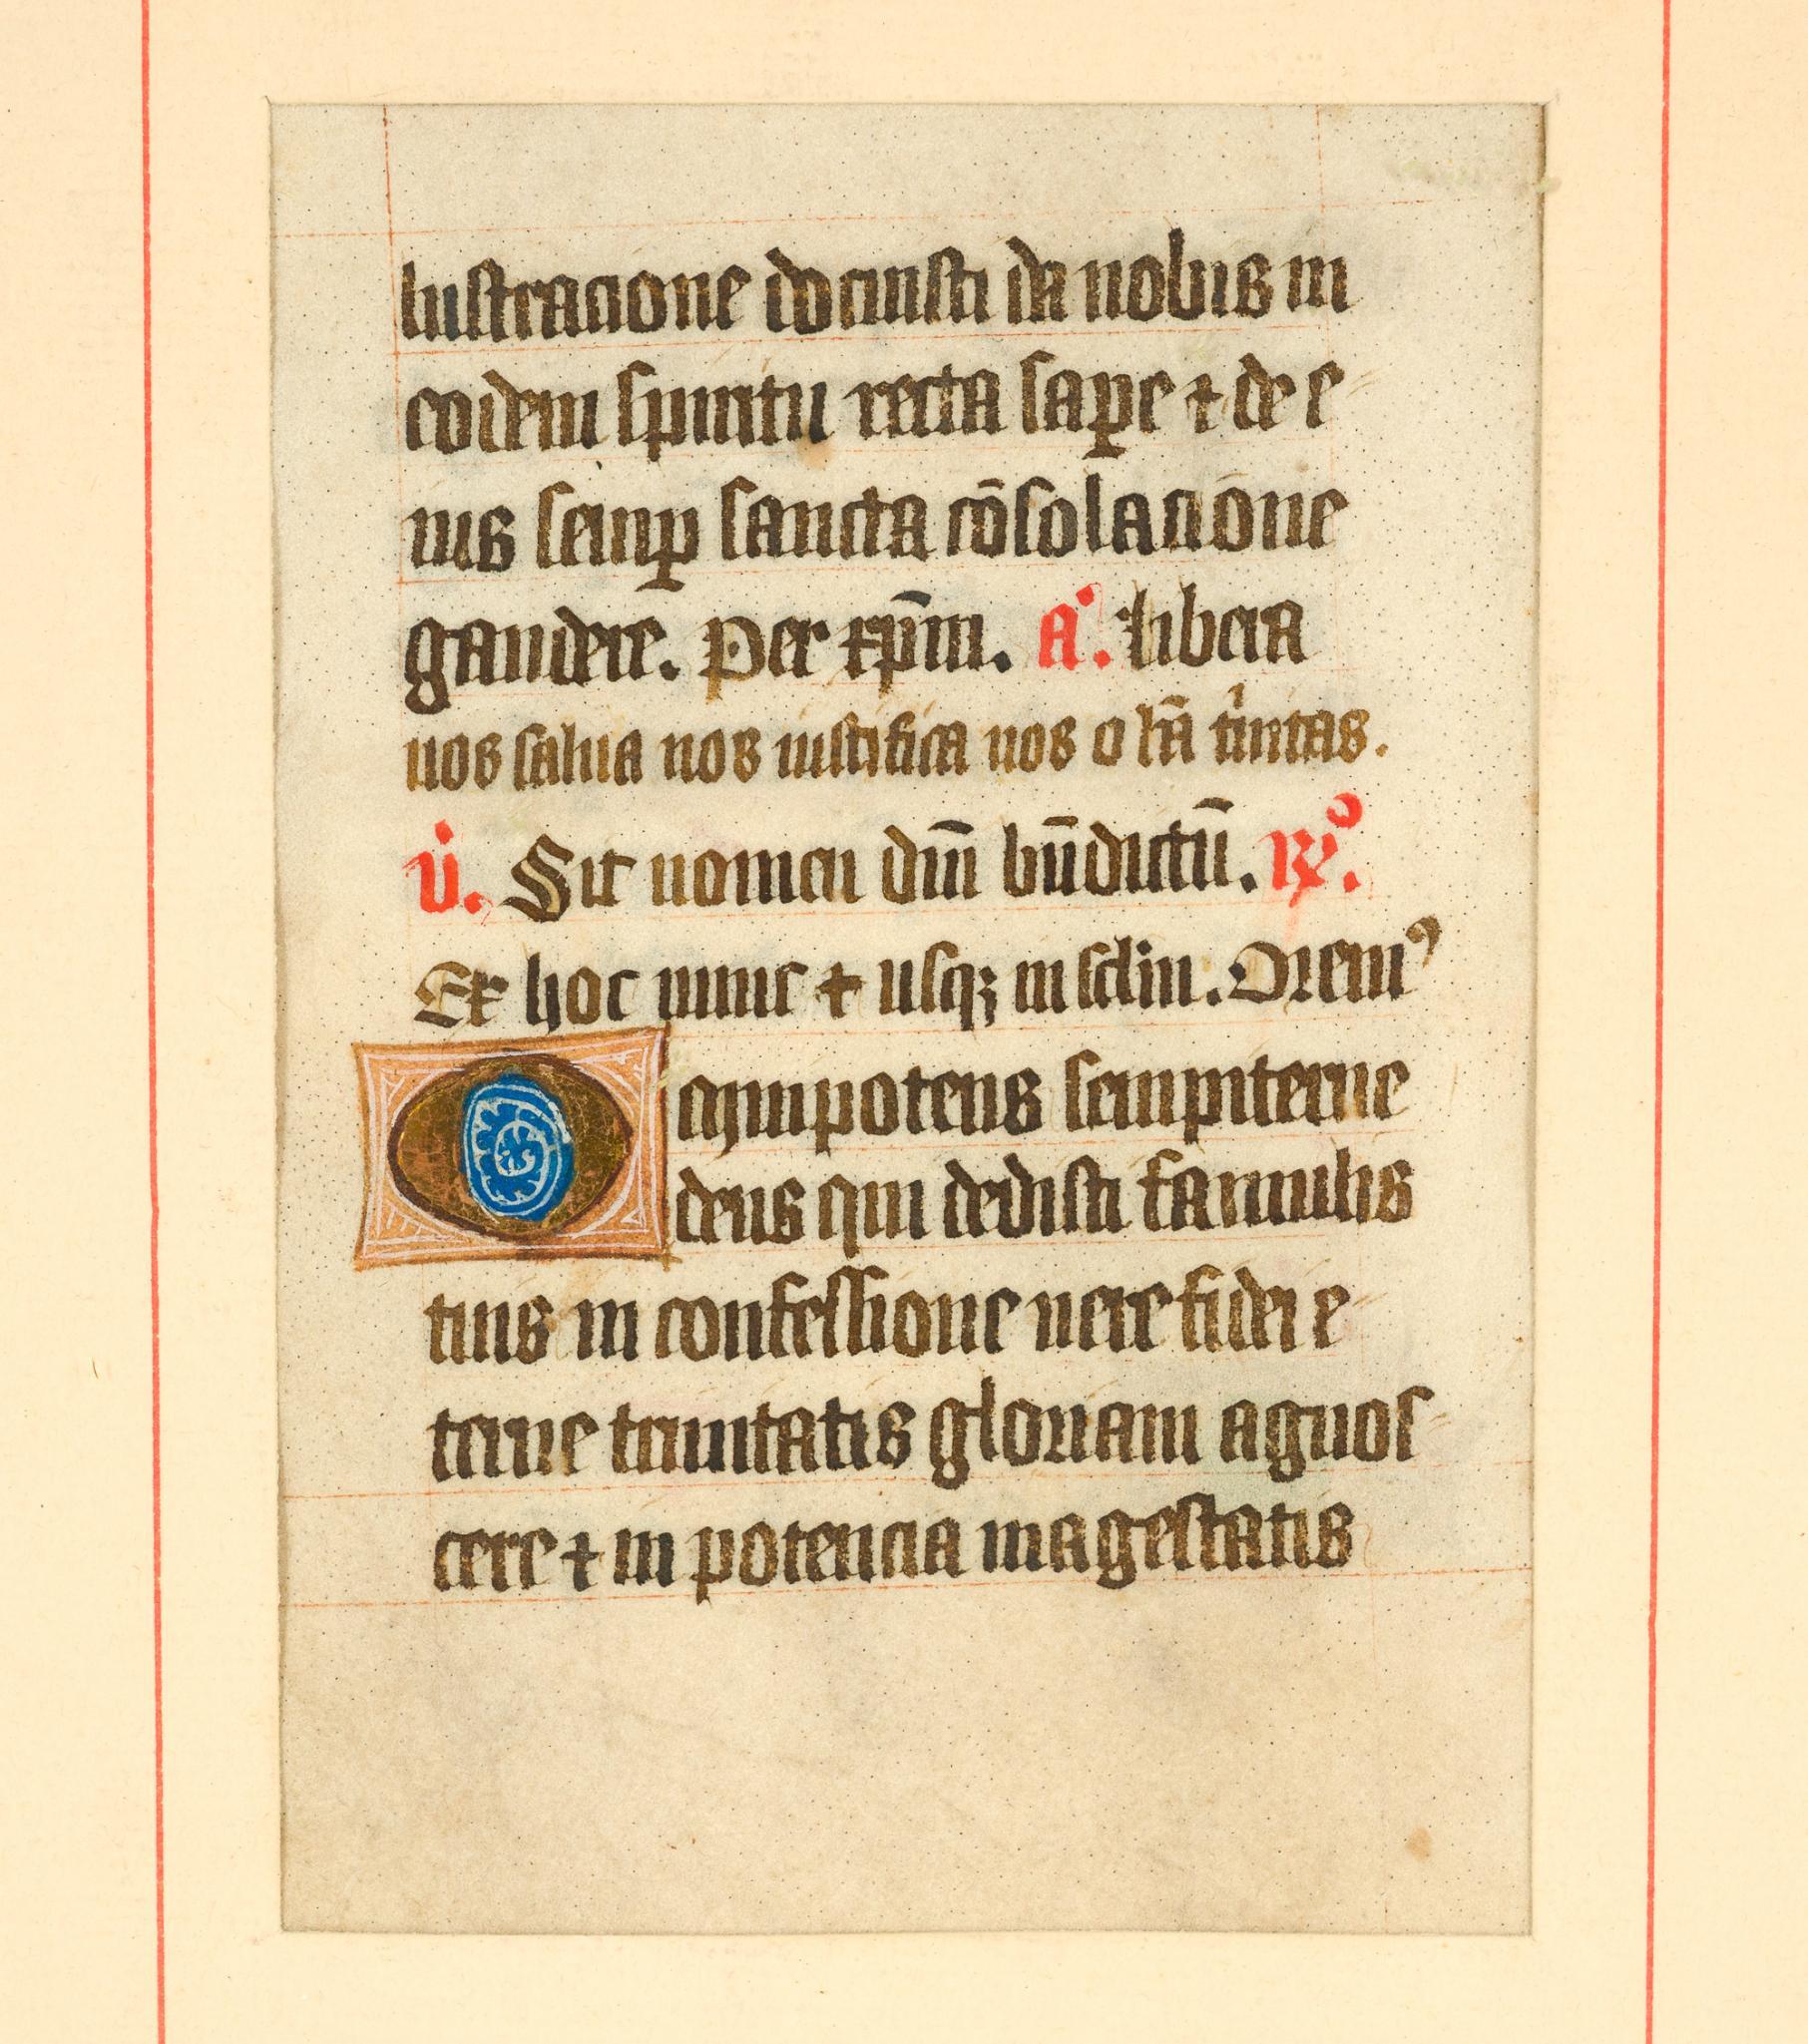 lustracione docuisti da nobis in
eodem spiritu recta saꝑe ⁊ de e
ius semꝑ sancta cōsolacione
gaudere. Per xp̄m. a͛. libera
nos salua nos iustifica nos o bt̄a tͥnitas.
v͛. Sit nomen dn̄i bn̄dictū. ℟.
Ex hoc nunc ⁊ usqꝫ in sclm. Oremꝰ
O mnipotens sempiterne
deus qui dedisti famulis
tuis in confessione uere fidei e
terne trinitatis gloriam agnos
cere ⁊ in potencia magestatis